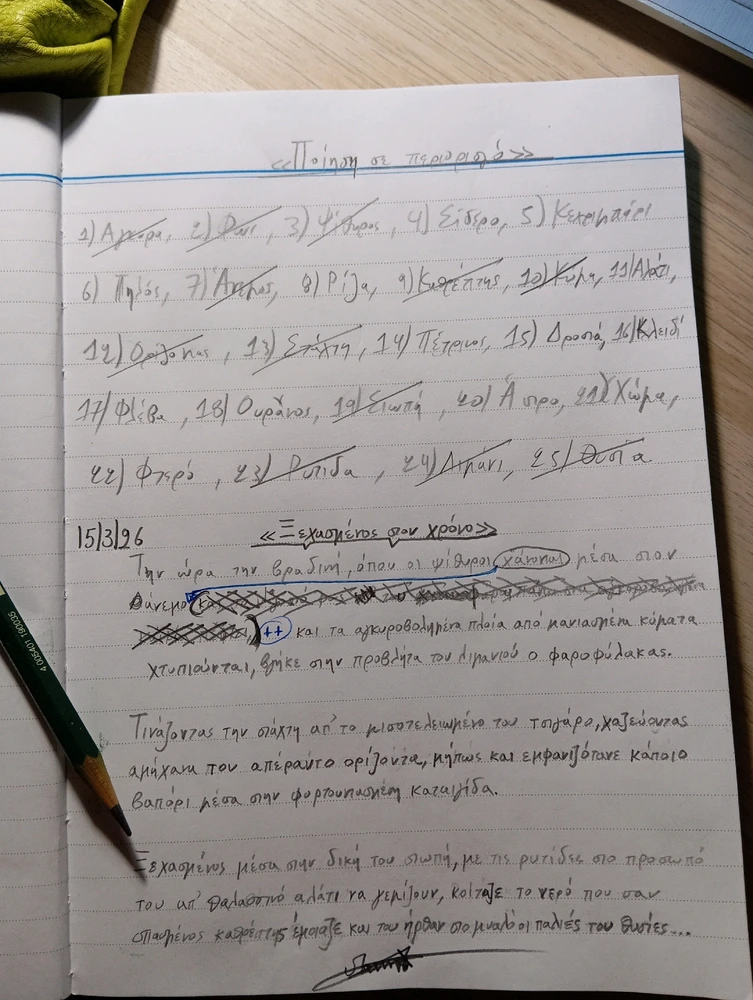 «Ποίηση σε περιορισμό»
1) Άγκυρα, 2) Φανι, 3) Ψίθυρος, 4) Σίδερο, 5) Κεχριμπάρι
6) Πηλός, 7) Άνεμος, 8) Ρίζα, 9) Καθρέπτης, 10) Κύμα, 11) Αλάτι,
12) Ορίζοντας, 13) Στάχτη, 14) Πέτρινος, 15) Δροσιά, 16) Κλειδί
17) Φλέβα, 18) Ουρανος, 19) Σιωπή, 20) Άσπρο, 21) Χώμα,
22) Φτερό, 23) Ρυτίδα, 24) Λιμάνι, 25) Θυσία
15/3/26 «Ξεχασμένος στον χρόνο»
Την ώρα την βραδινή, όπου οι ψίθυροι χάνονται μέσα στον
άνεμο
++ και τα αγκυροβολημένα πλοία από μανιασμένα κύματα
χτυπιούνται, βγήκε στην προβλήτα του λιμανιού ο φαροφύλακας.
Τινάζοντας την στάχτη απ' το μισοτελειωμένο του τσιγάρο, χαζεύοντας
αμήχανα τον απέραντο ορίζοντα, μήπως και εμφανιζότανε κάποιο
βαπόρι μέσα στην φουρτουνιασμένη καταιγίδα.
Ξεχασμένος μέσα στην δική του σιωπή, με τις ρυτίδες στο προσωπό
του απ' θαλασσινό αλάτι να γεμίζουν, κοίταζε το νερό που σαν
σπασμένος καθρέπτης έμοιαζε και του ήρθαν στο μυαλό οι παλιές του θυσίες...
4 005401 190035